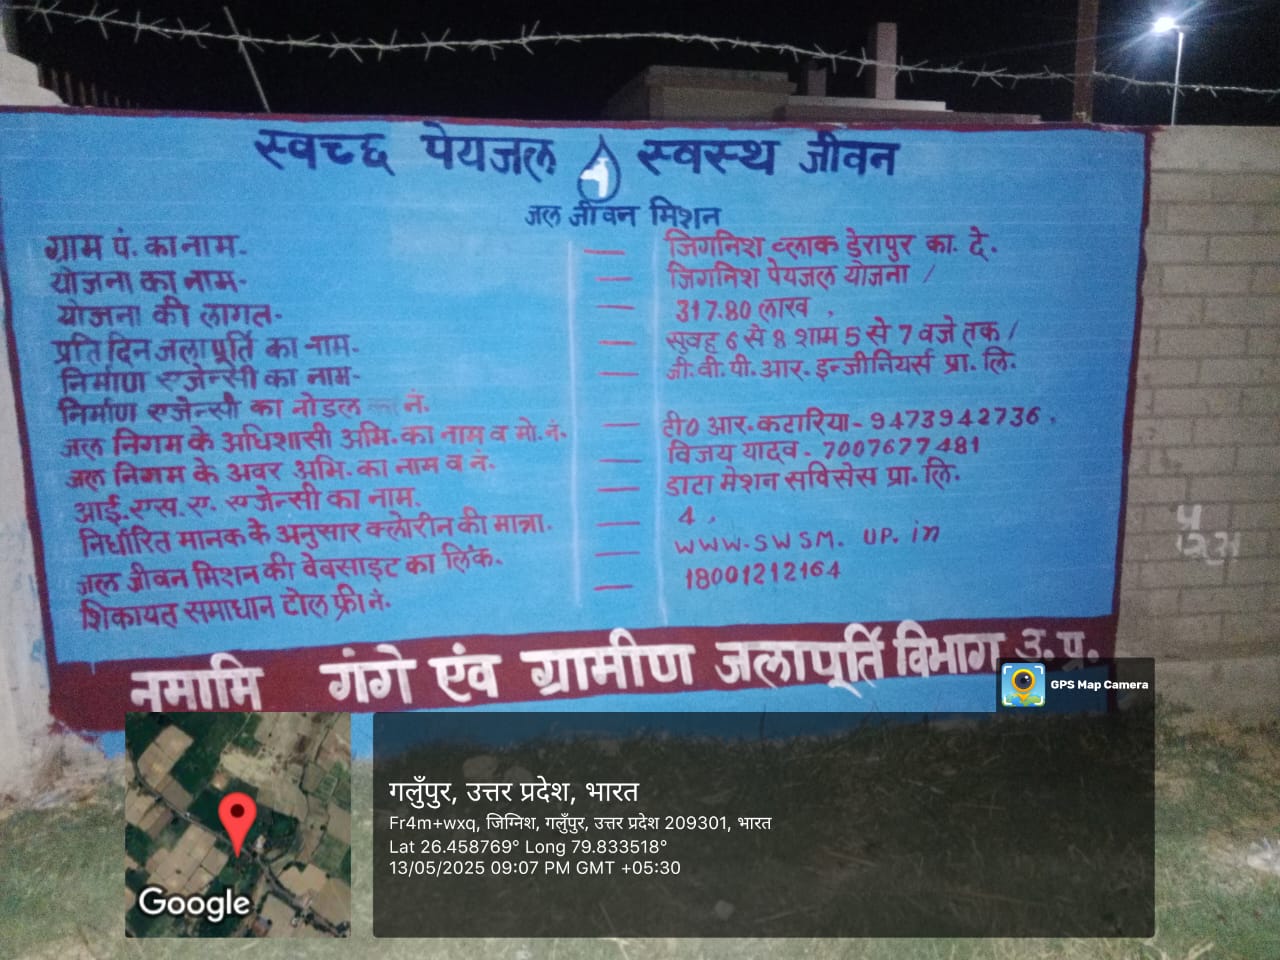 स्वच्छ पेयजल स्वस्थ जीवन
जल जीवन मिशन
ग्राम पं. का नाम. — जिगनिश ब्लाक डेरापुर का. दे.
योजना का नाम. — जिगनिश पेयजल योजना /
योजना की लागत. — 317.80 लाख .
प्रतिदिन जलापूर्ति का नाम. — सुवह 6 से 8 शाम 5 से 7 वजे तक /
निर्माण एजेन्सी का नाम. — जी.वी.पी.आर. इन्जीनियर्स प्रा. लि.
निर्माण एजेन्सी का नोडल नं.
जल निगम के अधिशासी अभि. का नाम व मो. नं. — टी० आर. कटारिया - 9473942736 .
जल निगम के अवर अभि. का नाम व नं. — विजय यादव - 7007677481
आई. एस. ए. एजेन्सी का नाम. — डाटा मेशन सविसेस प्रा. लि.
निर्धारित मानक के अनुसार क्लोरीन की मात्रा. — 4 .
जल जीवन मिशन की वेवसाइट का लिंक. — www.swsm. up. in
शिकायत समाधान टोल फ्री नं. — 18001212164
नमामि गंगे एंव ग्रामीण जलापूर्ति विभाग उ. प्र.
GPS Map Camera
गलुँपुर, उत्तर प्रदेश, भारत
Fr4m+wxq, जिग्निश, गलुँपुर, उत्तर प्रदेश 209301, भारत
Lat 26.458769° Long 79.833518°
13/05/2025 09:07 PM GMT +05:30
Google